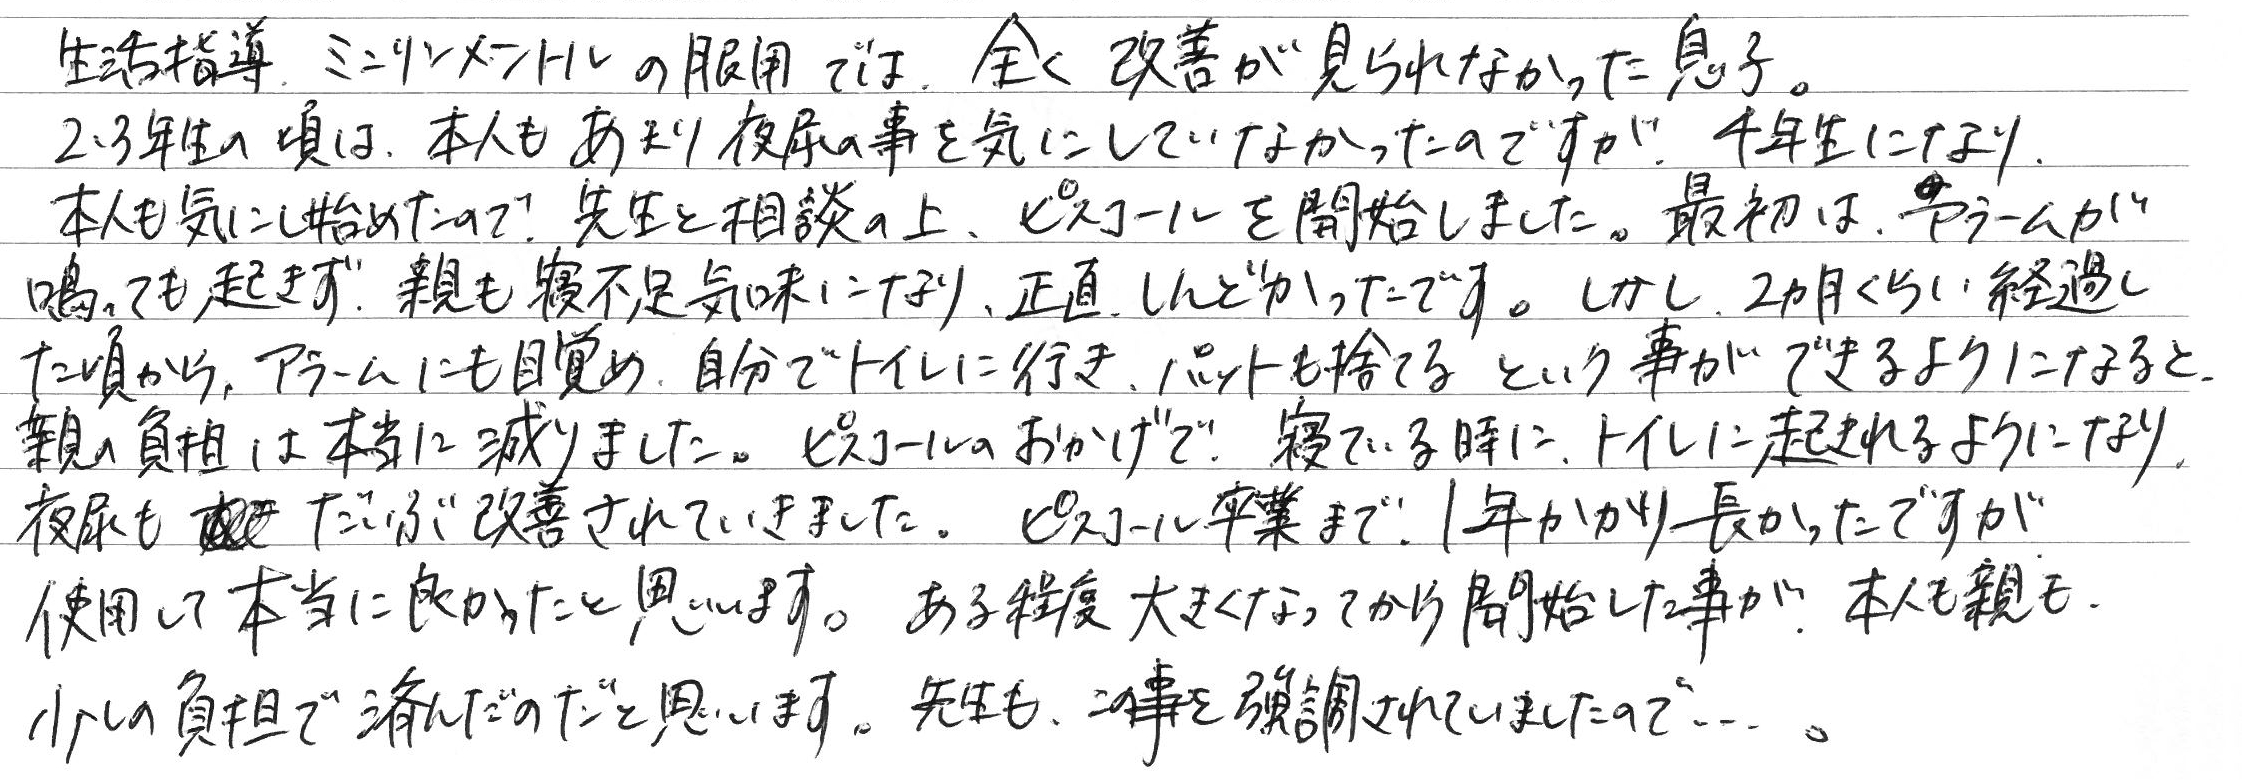 生活指導、ミニリンメントルの服用では、全く改善が見られなかった息子。
2、3年生の頃は、本人もあまり夜尿の事を気にしていなかったのですが、4年生になり、
本人も気にし始めたので、先生と相談の上、ピスコールを開始しました。最初は、アラームが
鳴っても起きず、親も寝不足気味になり、正直、しんどかったです。しかし、2カ月くらい経過し
た頃から、アラームにも目覚め、自分でトイレに行き、パットも捨てるという事ができるようになると、
親の負担は本当に減りました。ピスコールのおかげで、寝ている時に、トイレに起きれるようになり、
夜尿もだいぶ改善されていきました。ピスコール卒業まで、1年かかり長かったですが
使用して本当に良かったと思います。ある程度大きくなってから開始した事が、本人も親も、
少しの負担で済んだのだと思います。先生も、この事を強調されていましたので…。